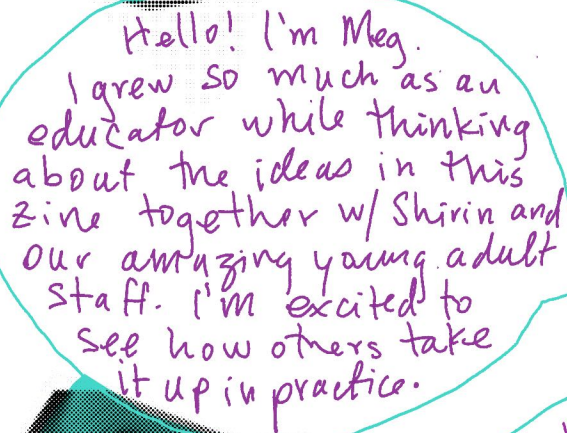 Hello! I'm Meg.
I grew so much as an
educator while thinking
about the ideas in this
zine together w/ Shirin and
our amazing young adult
staff. I'm excited to
see how others take
it up in practice.